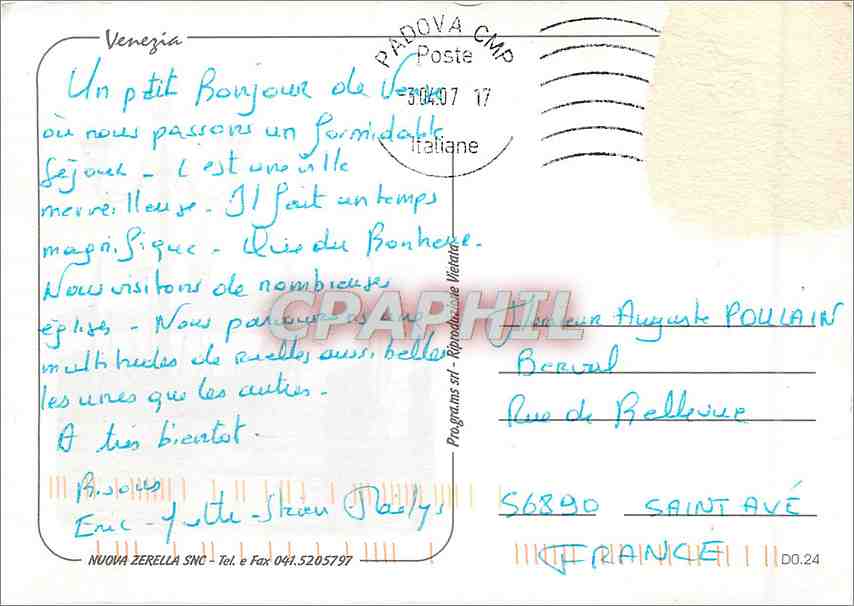 Venezia
PADOVA CMP
Poste
-3.04.07 17
Italiane
Un ptit Bonjour de Venise
où nous passons un formidable
séjour - C'est une ville
merveilleuse - Il fait un temps
magnifique - Que du Bonheur.
Nous visitons de nombreuses
églises - Nous parcourons une
multitudes de ruelles aussi belles
les unes que les autres.
A très bientot.
Bisous
Eric - Yvette -
CPAPHIL
Pro.gra.ms srl - Riproduzione Vietata
Monsieur Auguste POULAIN
Berval
Rue de Bellevue
56890 SAINT AVÉ
FRANCE
NUOVA ZERELLA SNC - Tel. e Fax 041.5205797
D0.24